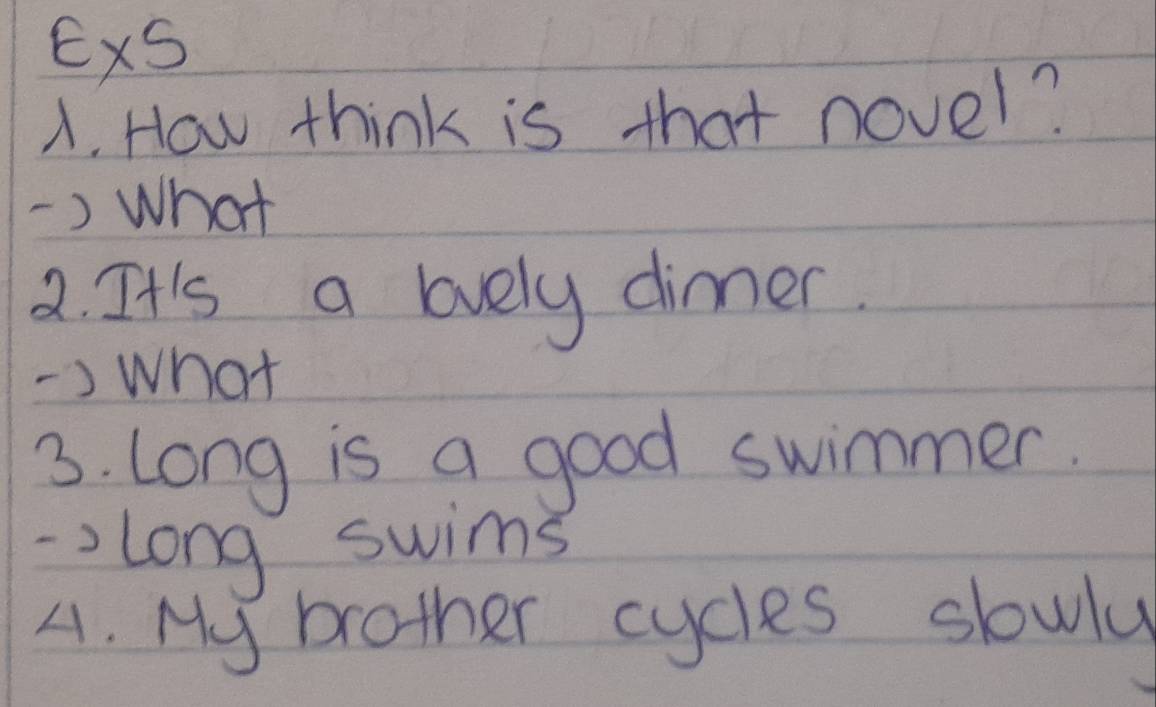 Ex5
1. How think is that novel?
-> What
2. It's a lovely dinner.
-> What
3. Long is a good swimmer.
-> Long swims
4. My brother cycles slowly